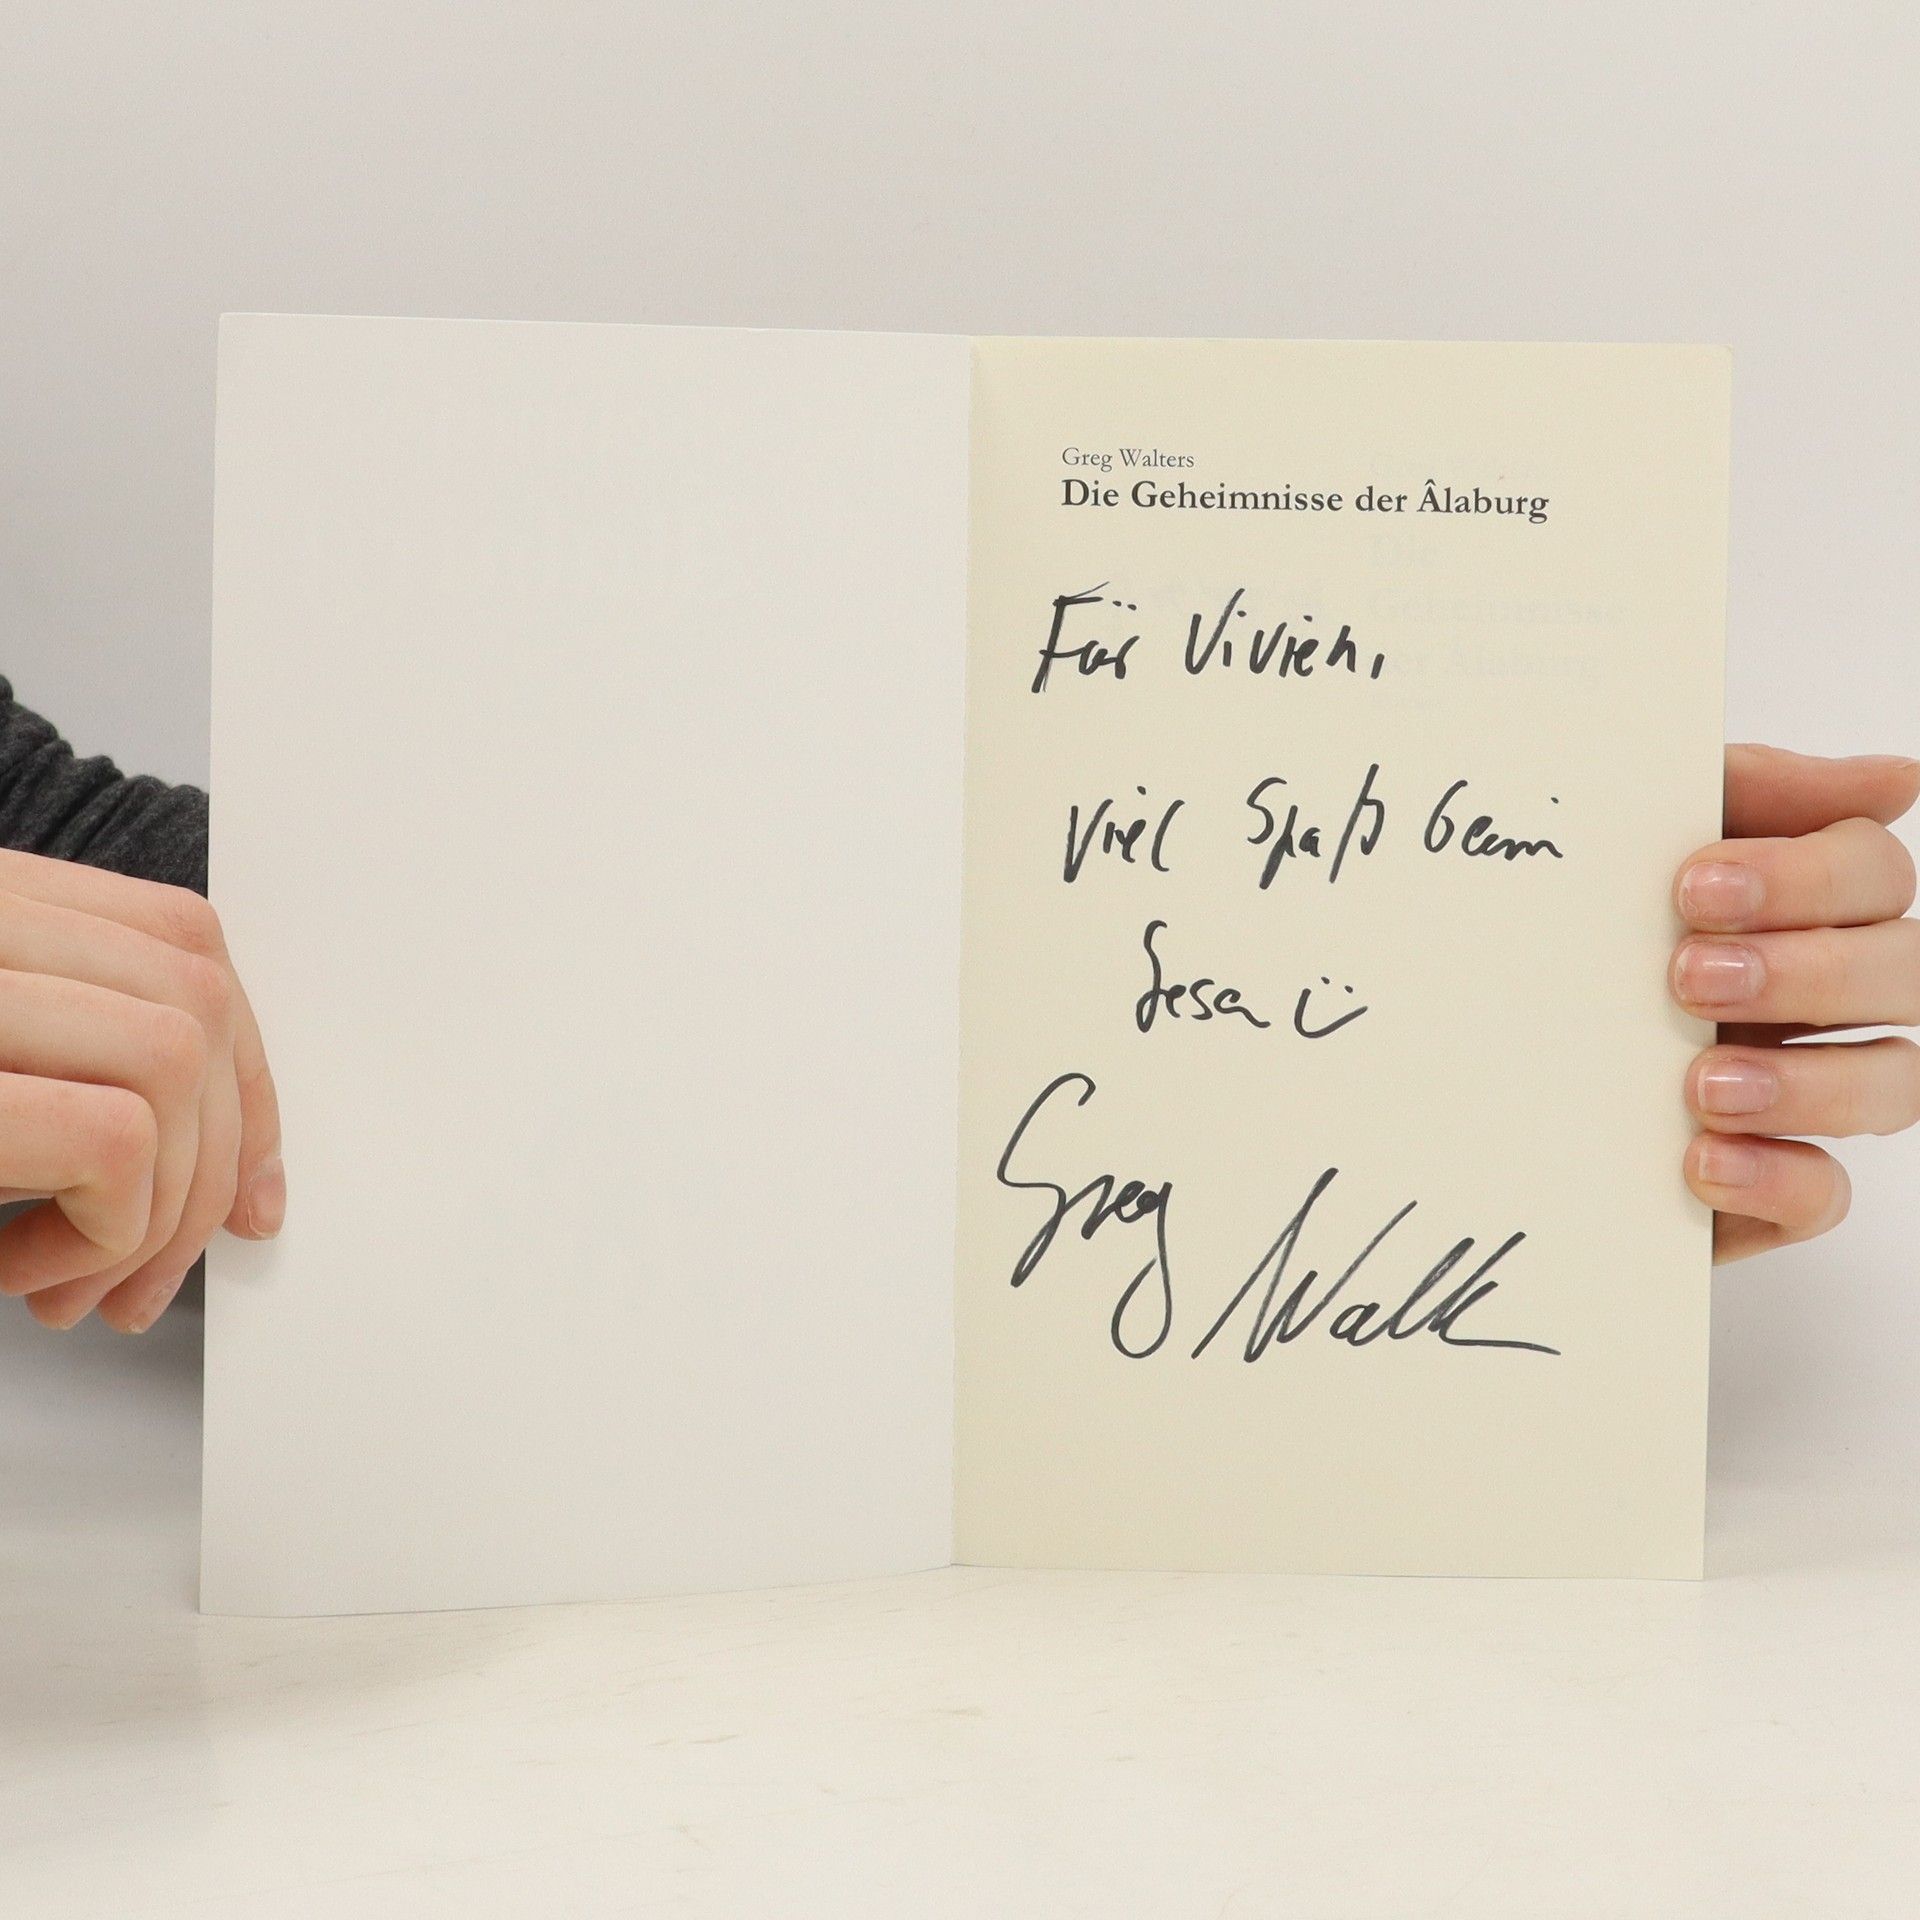 Greg Walters
Die Geheimnisse der Âlaburg
Für Vivien,
Viel Spaß beim
Lesen
Greg Walters